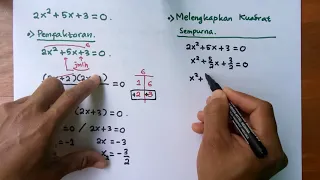 2x² + 5x + 3 = 0.
Pemfaktoran.
2x² + 5x + 3 = 0
6
jmlh
(2x+2)(2x+3) = 0
6
1 6
+2 +3
= 0 / 2x+3 = 0
= -1 2x = -3
x = -3/2
Melengkapkan Kuadrat
Sempurna.
2x² + 5x + 3 = 0
x² + 5/2x + 3/2 = 0
x² +